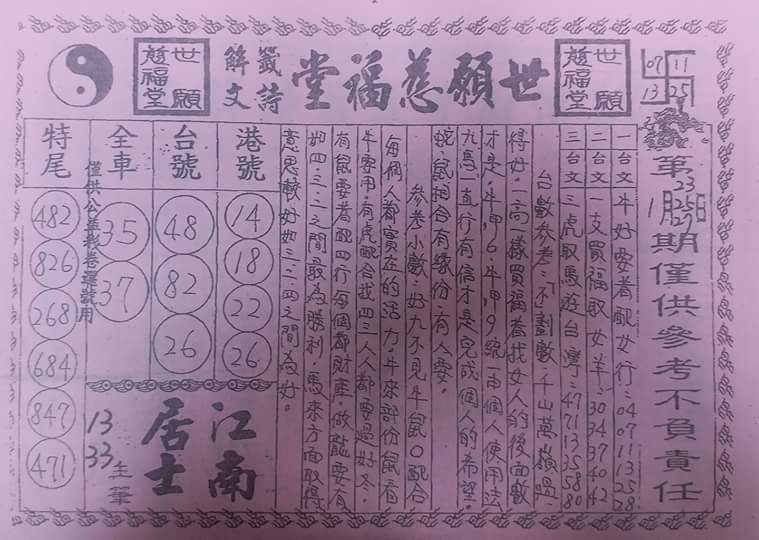 世願慈福堂
籤詩
解文
世願
慈福堂
世願
慈福堂
07 11
13 25
第 23 25 27 期僅供參考不負責任
1月
一台文 牛好要者配女行：04 07 11 13 25 28
二台文 一支買福取女羊：30 34 37 40 42
三台文 三虎取馬遊台灣：47 71 13 35 58 80
台數參考：不劃數·千山萬嶺過·
得好·一高一樣買福奮找女人的後面數
才是·牛冲6·牛冲9·統一兩個人使用法
九馬一直行有信才是完成個人的希望·
蛇·鼠相合有緣份·有人要·
參考小數：好九不見牛鼠0配合
每個人都實在的活力·牛來部份鼠看
牛客用·有虎配合找四三人人都要過好冬·
有鼠要者配四行每個都財產·做龍要有
如四·三·二之間最為勝利·馬來方面取得
意思較好如三三·四之間為好。
港號
14
18
22
26
台號
48
82
26
全車
35
37
僅供公益彩卷選號用
特尾
482
826
268
684
847
471
江南
居士
13
33
主筆